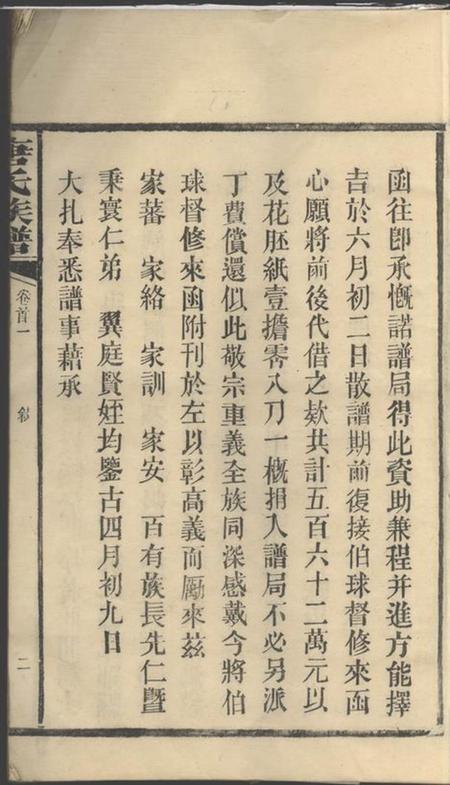 函往卽承慨諾譜局得此資助兼程并進方能擇
吉於六月初二日散譜期前復接伯球督修來函
心願將前後代借之欵共計五百六十二萬元以
及花胚紙壹擔零八刀一槪捐入譜局不必另派
丁費償還似此敬宗重義全族同深感戴今將伯
球督修來函附刊於左以彰高義而勵來茲
家蕃 家絡 家訓 家安 百有族長先仁曁
秉寰仁弟 翼庭賢姪均鑒古四月初九日
大扎奉悉譜事藉承
唐氏族譜 卷首一 敍 二